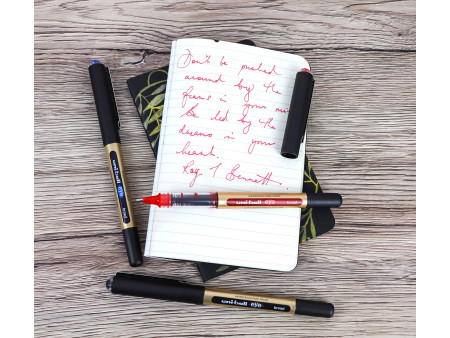 Don't be pushed
around by the
fears in your mi
Be led by the
dreams in your
heart.
Roy T Bennett.
uni-ball eye
uni-ball eye
uni-ball eye broad